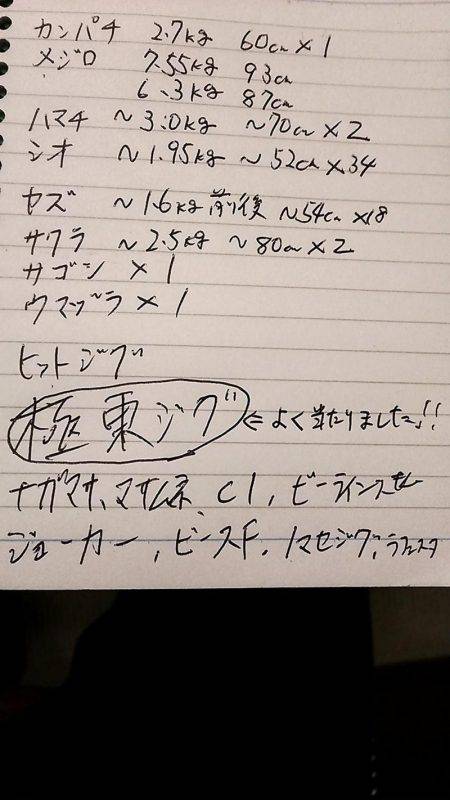 カンパチ 2.7kg 60cm×1
メジロ 7.55kg 93cm
6.3kg 87cm
ハマチ ~3.0kg ~70cm×2
シオ ~1.95kg ~52cm×34
ヤズ ~1.6kg前後 ~54cm×18
サワラ ~2.5kg ~80cm×2
サゴシ ×1
ウマヅラ×1
ヒットジグ
極東ジグ ⇐よく当たりました!!
ナガマサ、マサムネ、C1, ビーライン
ジョーカー, ビンスF, ハマセジグ,